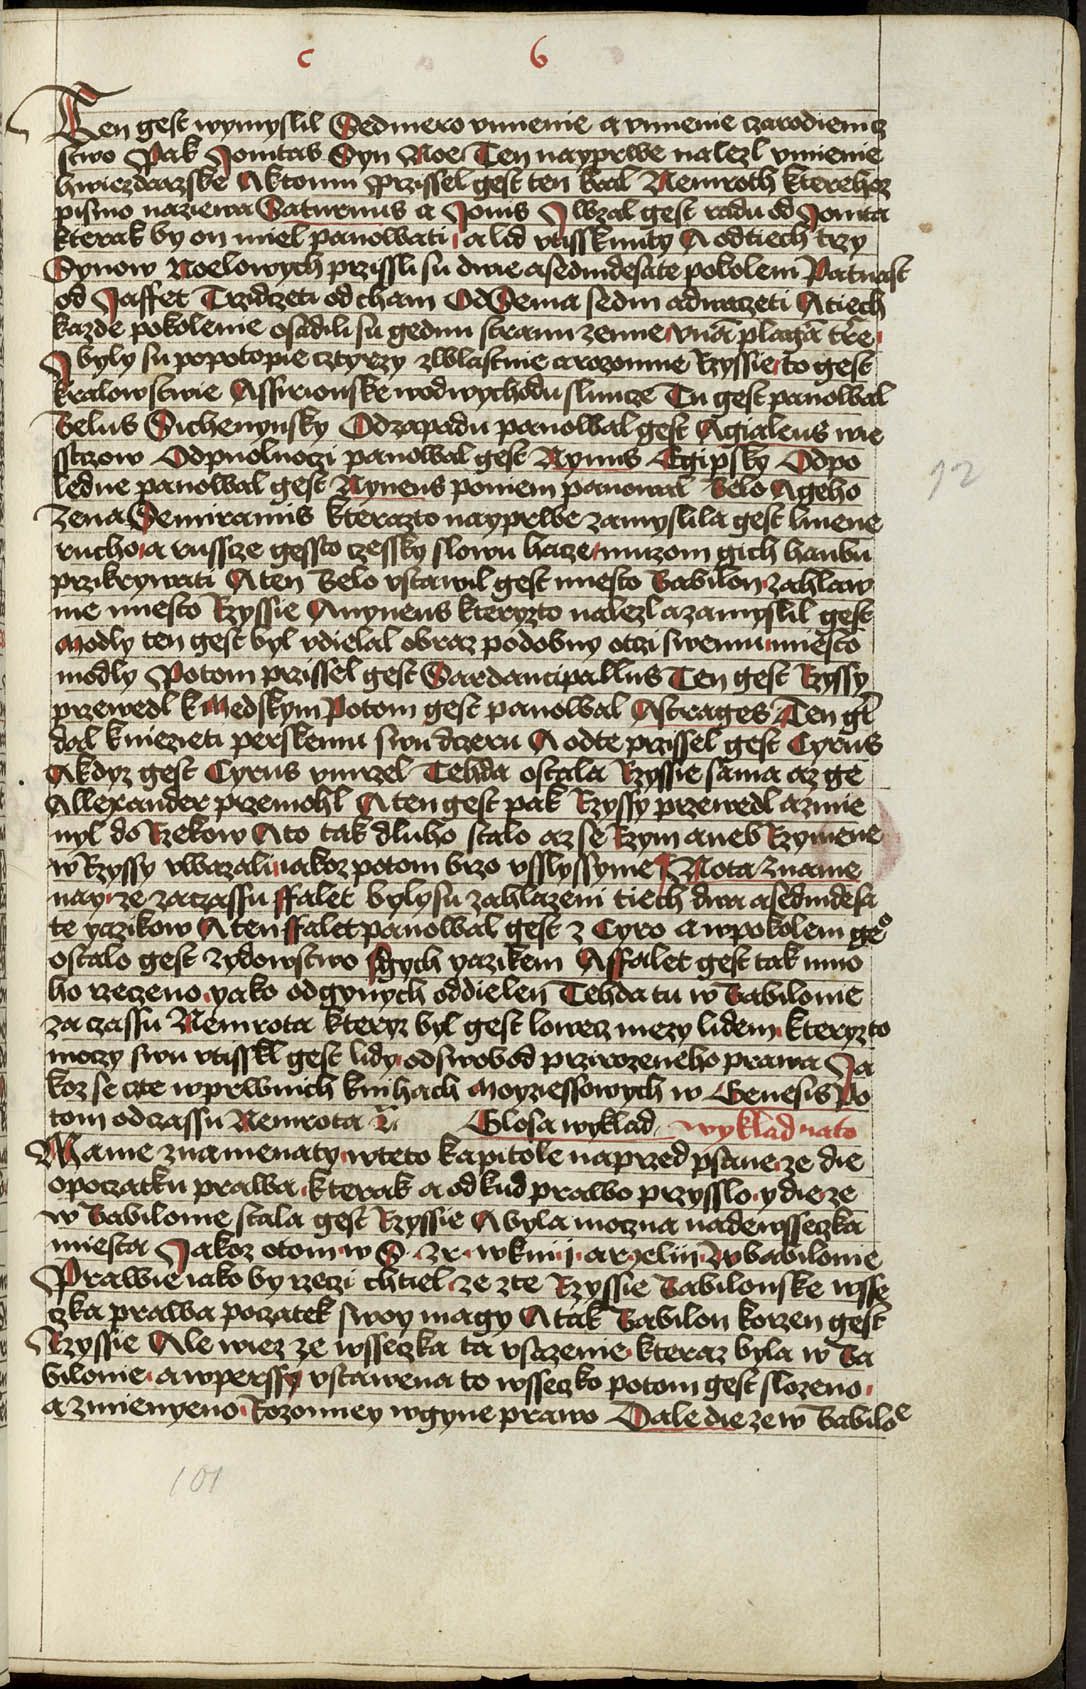 c 6
Ten gest wymyslil Sedmero vmienie a vmienie czarodienicz
stwo Pak Jonitas Syn Noe Ten nayprwe nalezl vmienie
hwiezdarzske A ktomu przissel gest ten kral Nemroth kterehoz
pismo naziewa Saturnus a Jouis J wzal gest radu od Jonita
kterak by on miel panowati a lid vtissknuty A odtiech trzy
Synow Noelowych przissli su dwie a sedmdesate pokoleni Patnast
od Jaffet Trzidczeti od cham Od Sema sedm adwaczeti A tiech
kazde pokolenie osadili su gednu stranu zemie vnā plagā tr̄e
J byly su popotopie cztyrzy zwlastnie a rozomne Rzyssie to gest
kralowstwie Assirionske wodwychodu slunce Tu gest panowal
Belus Sichenynsky Odzapadu panowal gest Agialeus wie
sstzow Odpuolnoczi panowal gest Nynus Egipsky Odpo
ledne panowal gest Nyneus poniem panowal Belo A geho
zena Semiramis kterazto nayprwe zamyslila gest lniene
rucho a russcze gessto czessky slowu hacze muzom gich hanbu
przikrywati A ten Belo vstawil gest miesto Babilon zahlaw
nie miesto Rzyssie A nyneus kteryzto nalezl a zamyslil gest
modly ten gest byl vdielal obraz podobny otczi swemu miesto
modly Potom przissel gest Sardancipallus Ten gest Rzyssy
przewedl k Medskym Potom gest panowal Astrages Ten gt̄
dal kniezieti perskemu swu dczeru A odte przissel gest Cyrus
A kdyz gest Cyrus vmrzel Tehda ostala Rzyssie sama az ge
Allexander przemohl A ten gest pak Rzyssy przewedl a zmie
nyl do Rzekow A to tak dluho stalo az se Rzym aneb Rzymene
w Rzyssy vwazali iakoz potom brzo vsslyssyme Nota zname
nay ze zaczassu ffalet byly su zahlazeni tiech dwa a sedmdesa
te yazikow A ten ffalet panowal gest z Cyro a wpokoleni ge°
ostalo gest zydowstwo s gych yazikem A ffalet gest tak mno
ho rzeczeno yako od gynych oddieleny Tehda tu w Babilonie
za czassu Nemrota kteryz byl gest lowecz mezy lidem kteryzto
moczy swu vtisskl gest lidy odswobod przirozeneho prawa Ja
koz se czte wprwnich knihach Moyziessowych w Genesis Po
tom odczassu Nemrota Glosa wyklad wyklad nato
Mame znamenaty wteto kapitole naprzed psane ze die
opoczatku prawa kterak a odkud prawo przysslo y die ze
w Babilonie stala gest Rzyssie A byla moczna nadewssecka
miesta Jakoz otom w
Prawie iako by rzeczi chtiel ze zte Rzyssie Babilonske wsse
czka prawa poczatek swoy magy A tak Babilon korzen gest
Rzyssie Ale wiez ze wsseczka ta vstzenie kteraz byla w Ba
bilonie a wperssy vstawena to wsseczko potom gest slozeno
a zmienyeno Rozomney wgyne prawo Dale die ze w Babiloe
12
101